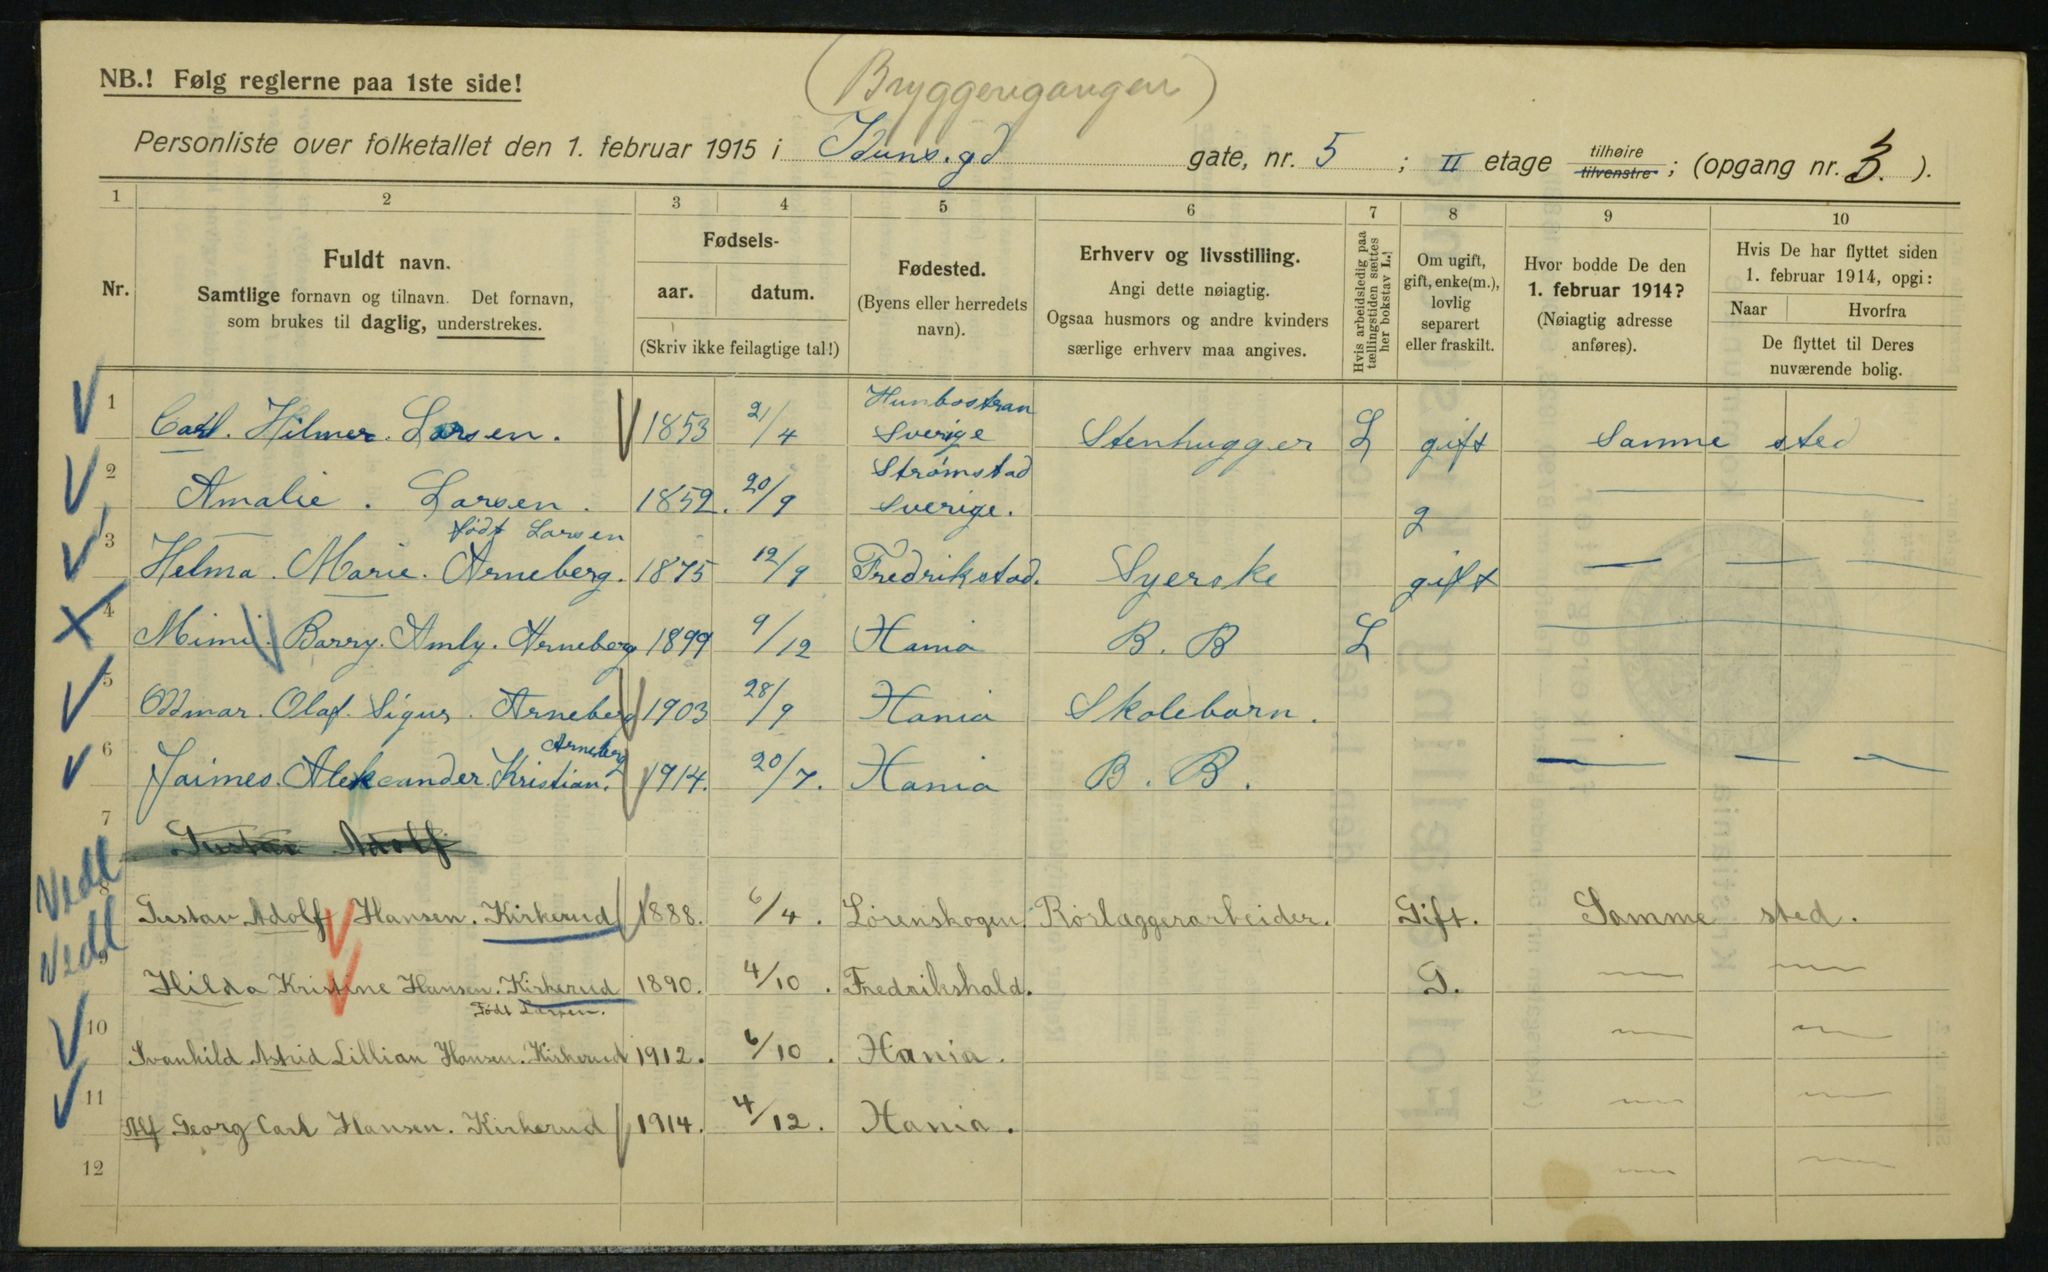 (Bryggerigangen)
NB.! Følg reglerne paa 1ste side!
Personliste over folketallet den 1. februar 1915 i Iduns.gd gate, nr. 5 ; II etage tilhøire tilvenstre ; (opgang nr. 3. ).
1 2 3 4 5 6 7 8 9 10
Nr.
Fuldt navn.
Samtlige fornavn og tilnavn. Det fornavn,
som brukes til daglig, understrekes.
Fødsels-
aar. datum.
(Skriv ikke feilagtige tal!)
Fødested.
(Byens eller herredets
navn).
Erhverv og livsstilling.
Angi dette nøiagtig.
Ogsaa husmors og andre kvinders
særlige erhverv maa angives.
Hvis arbeidsledig paa
tællingstiden sættes
her bokstav L.
Om ugift,
gift, enke(m.),
lovlig
separert
eller fraskilt.
Hvor bodde De den
1. februar 1914?
(Nøiagtig adresse
anføres).
Hvis De har flyttet siden
1. februar 1914, opgi:
Naar Hvorfra
De flyttet til Deres
nuværende bolig.
1 Carl. Hilmer. Larsen. 1853 21/4 Hunbostran Sverige Stenhugger L gift Samme sted
2 Amalie. Larsen. 1852. 20/9 Strømstad Sverige. g
født Larsen
3 Helma. Marie. Arneberg. 1875 12/9 Fredrikstad. Syerske gift — — —
4 Mimi. Barry. Amly. Arneberg 1899 9/12 Kania B. B L
5 Oddmar. Olaf. Sigur. Arneberg 1903 28/9 Kania Skolebarn.
Arneberg
6 Jaimes. Aleksander. Kristian. 1914. 20/7. Kania B. B. — — —
7 Gustav Adolf
Vedl 8 Gustav Adolf Hansen. Kirkerud 1888. 6/4. Lørenskogen. Rørlæggerarbeider. Gift. Samme sted.
Vedl 9 Hilda Kristine Hansen. Kirkerud 1890. 4/10. Fredrikshald. G. — —
Født Larsen.
10 Svanhild Astrid Lillian Hansen. Kirkerud 1912. 6/10. Kania. — —
11 Alf Georg Carl Hansen. Kirkerud 1914. 4/12. Kania. — —
12 — —